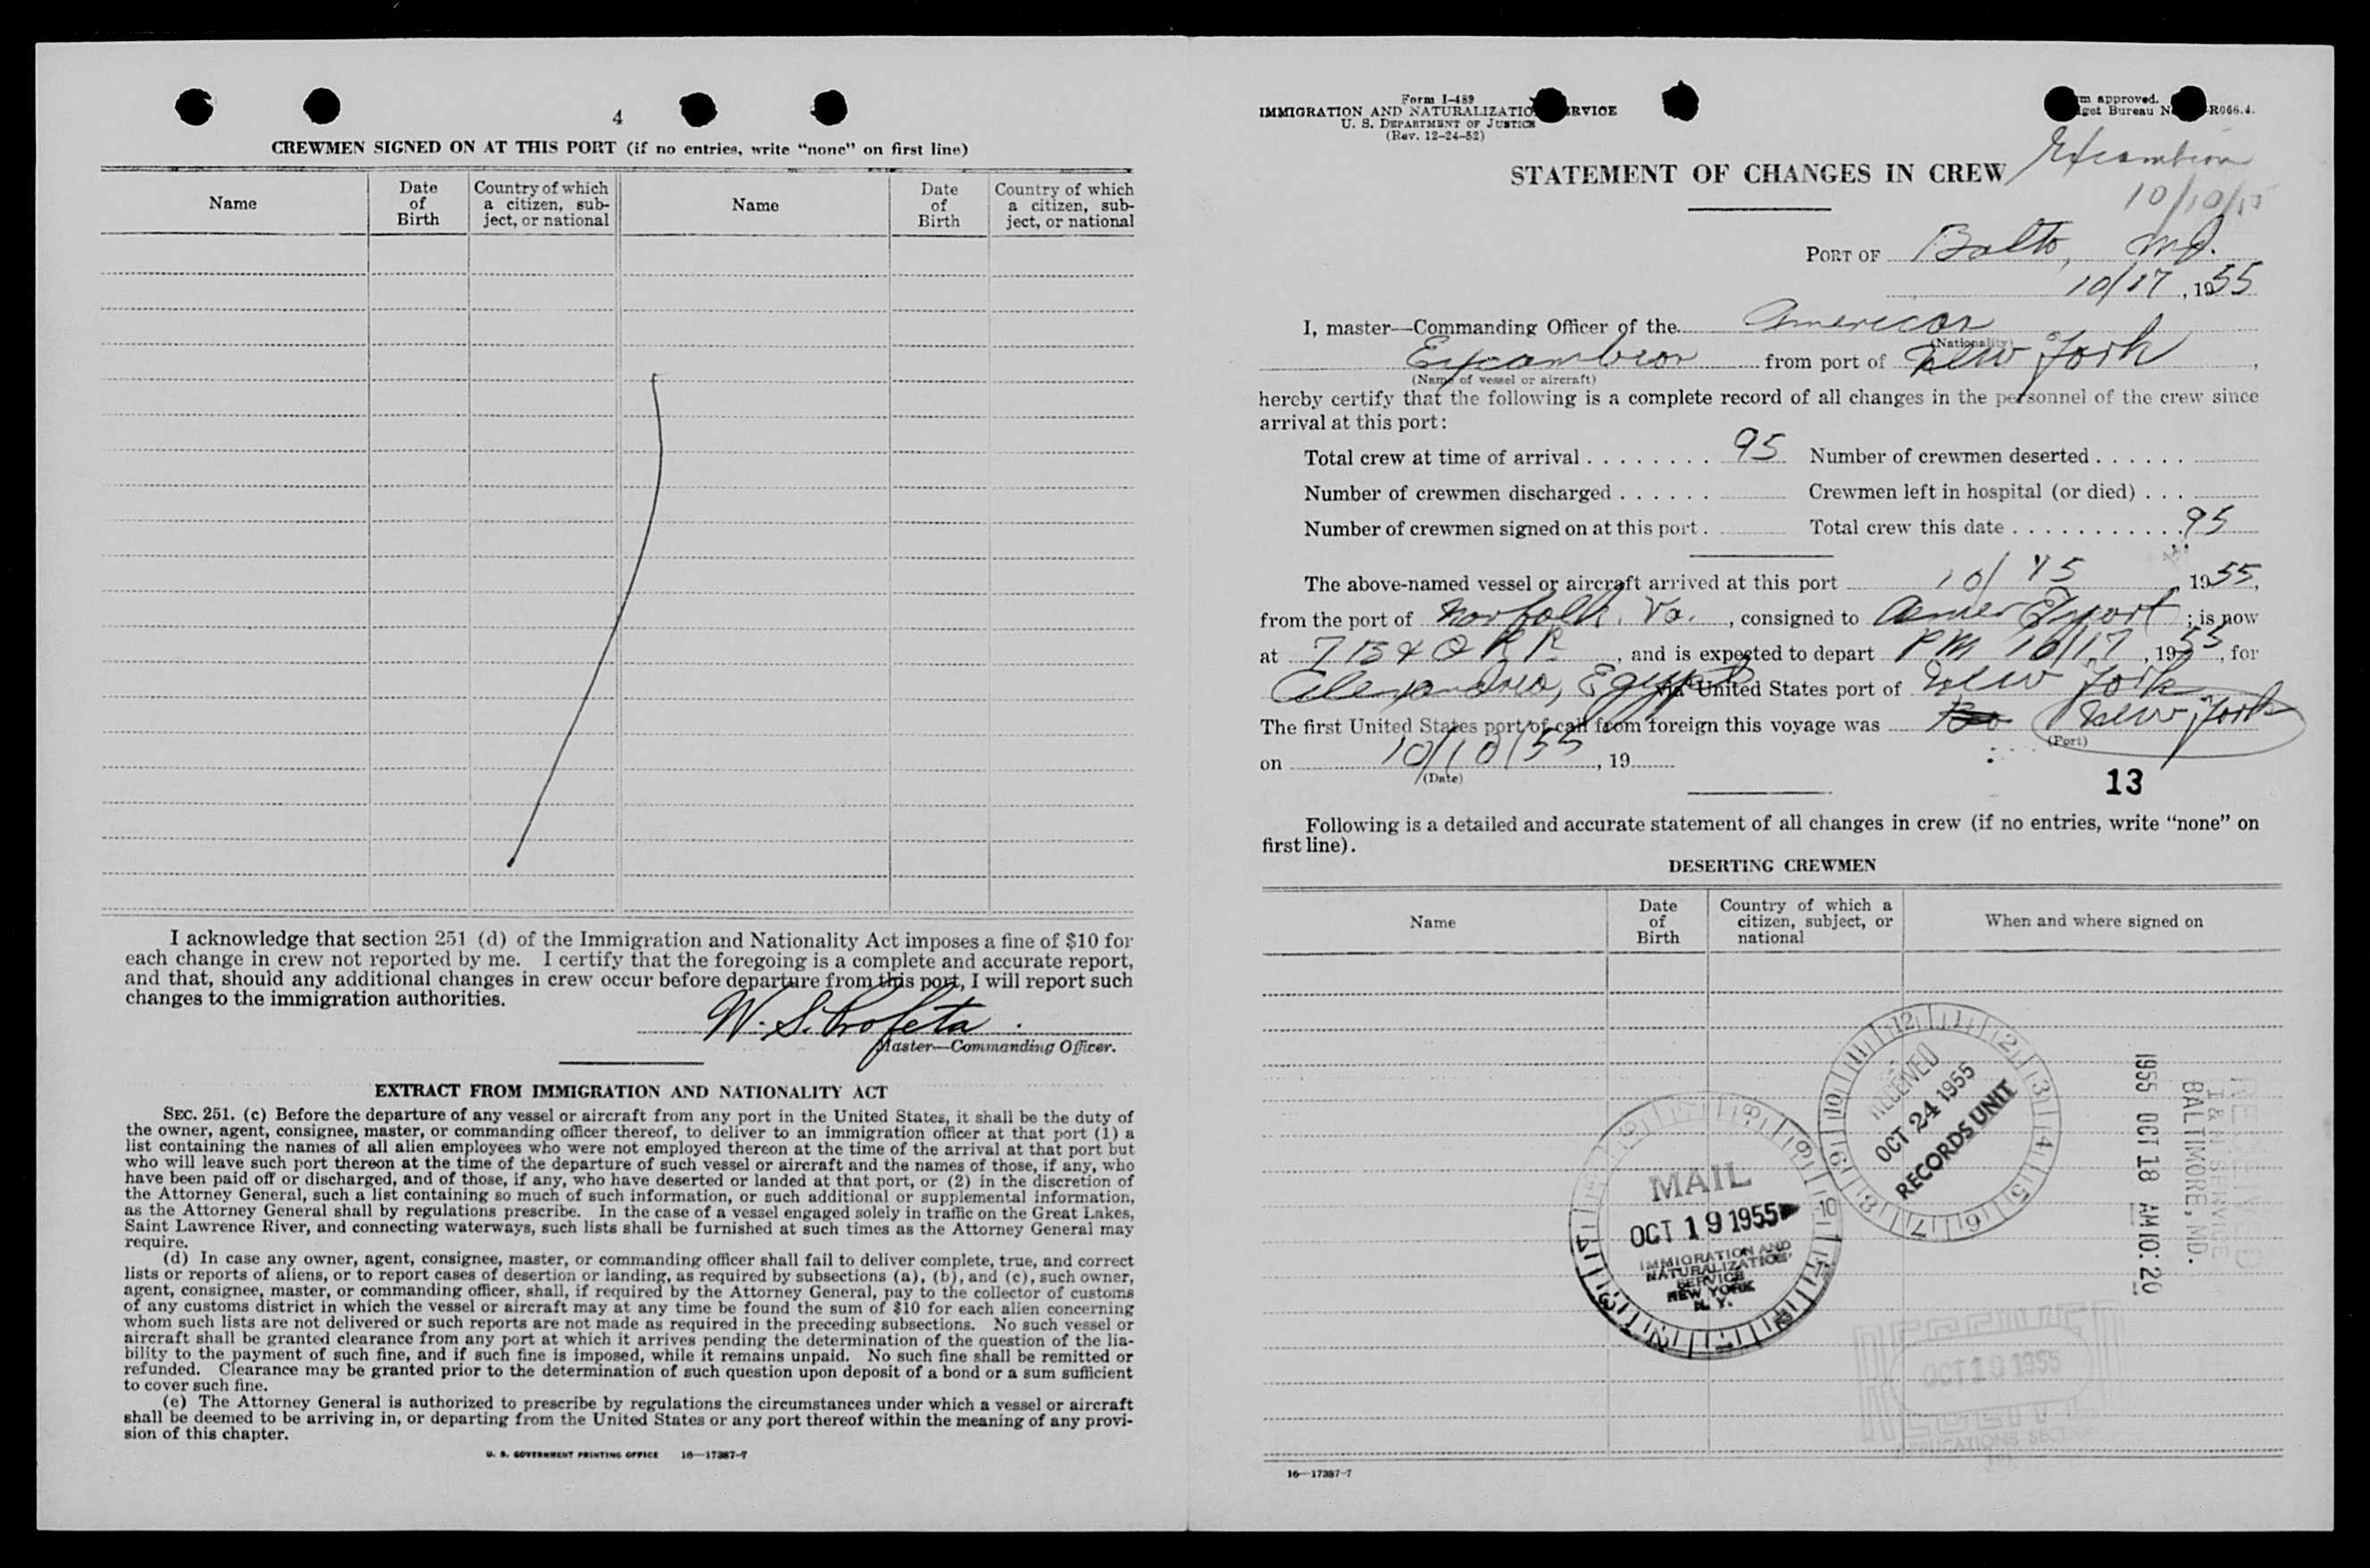 4
CREWMEN SIGNED ON AT THIS PORT (if no entries, write “none” on first line)
Name
Date of Birth
Country of which a citizen, sub-ject, or national
Name
Date of Birth
Country of which a citizen, sub-ject, or national
I acknowledge that section 251 (d) of the Immigration and Nationality Act imposes a fine of $10 for
each change in crew not reported by me. I certify that the foregoing is a complete and accurate report,
and that, should any additional changes in crew occur before departure from this port, I will report such
changes to the immigration authorities.
W. S. Profeta
Master—Commanding Officer.
EXTRACT FROM IMMIGRATION AND NATIONALITY ACT
SEC. 251. (c) Before the departure of any vessel or aircraft from any port in the United States, it shall be the duty of
the owner, agent, consignee, master, or commanding officer thereof, to deliver to an immigration officer at that port (1) a
list containing the names of all alien employees who were not employed thereon at the time of the arrival at that port but
who will leave such port thereon at the time of the departure of such vessel or aircraft and the names of those, if any, who
have been paid off or discharged, and of those, if any, who have deserted or landed at that port, or (2) in the discretion of
the Attorney General, such a list containing so much of such information, or such additional or supplemental information,
as the Attorney General shall by regulations prescribe. In the case of a vessel engaged solely in traffic on the Great Lakes,
Saint Lawrence River, and connecting waterways, such lists shall be furnished at such times as the Attorney General may
require.
(d) In case any owner, agent, consignee, master, or commanding officer shall fail to deliver complete, true, and correct
lists or reports of aliens, or to report cases of desertion or landing, as required by subsections (a), (b), and (c), such owner,
agent, consignee, master, or commanding officer, shall, if required by the Attorney General, pay to the collector of customs
of any customs district in which the vessel or aircraft may at any time be found the sum of $10 for each alien concerning
whom such lists are not delivered or such reports are not made as required in the preceding subsections. No such vessel or
aircraft shall be granted clearance from any port at which it arrives pending the determination of the question of the lia-
bility to the payment of such fine, and if such fine is imposed, while it remains unpaid. No such fine shall be remitted or
refunded. Clearance may be granted prior to the determination of such question upon deposit of a bond or a sum sufficient
to cover such fine.
(e) The Attorney General is authorized to prescribe by regulations the circumstances under which a vessel or aircraft
shall be deemed to be arriving in, or departing from the United States or any port thereof within the meaning of any provi-
sion of this chapter.
U. S. GOVERNMENT PRINTING OFFICE 16—17387-7
Form I-489
IMMIGRATION AND NATURALIZATIO RVICE
U. S. DEPARTMENT OF JUSTICE
(Rev. 12-24-52)
m approved.
get Bureau N R066.4.
STATEMENT OF CHANGES IN CREW
Excambion
10/10/55
PORT OF Balto, Md.
10/17, 1955
I, master—Commanding Officer of the American
(Nationality)
Excambion from port of New York,
(Name of vessel or aircraft)
hereby certify that the following is a complete record of all changes in the personnel of the crew since
arrival at this port:
Total crew at time of arrival 95 Number of crewmen deserted
Number of crewmen discharged Crewmen left in hospital (or died)
Number of crewmen signed on at this port Total crew this date 95
The above-named vessel or aircraft arrived at this port 10/15, 1955,
from the port of Norfolk, Va., consigned to Amer Export; is now
at 7 B & O RR, and is expected to depart PM 10/17, 1955, for
Alexandria, Egypt via United States port of New York
The first United States port of call from foreign this voyage was New York
(Port)
on 10/10/55, 19
(Date)
13
Following is a detailed and accurate statement of all changes in crew (if no entries, write “none” on
first line).
DESERTING CREWMEN
Name
Date of Birth
Country of which a citizen, subject, or national
When and where signed on
RECEIVED
OCT 24 1955
RECORDS UNIT
MAIL
OCT 19 1955
IMMIGRATION AND
NATURALIZATION
SERVICE
NEW YORK
N. Y.
RECEIVED
I & N SERVICE
BALTIMORE, MD.
1955 OCT 18 AM 10:20
OCT 19 1955
16—17387-7